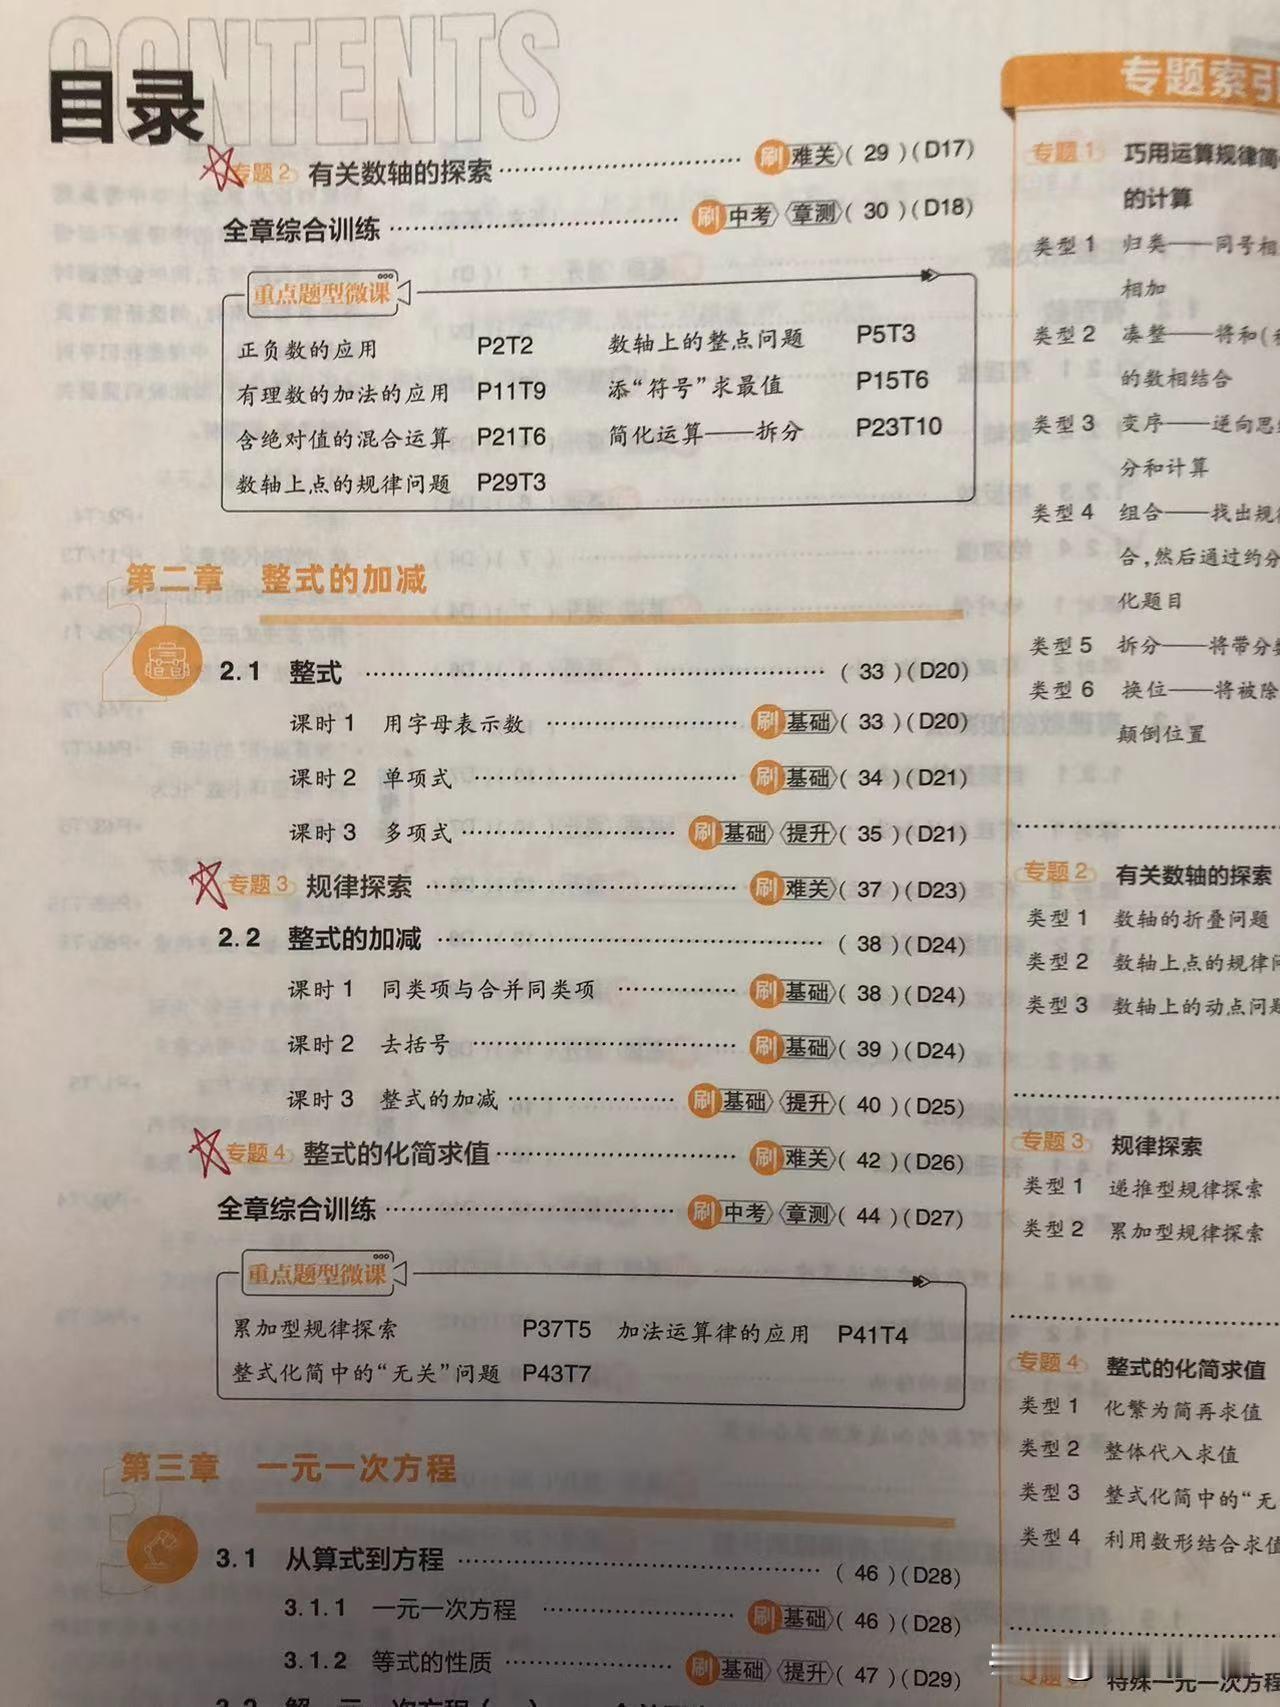 CONTENTS
目录
专题2 有关数轴的探索 刷 难关 ( 29 )(D17)
全章综合训练 刷 中考 章测 ( 30 )(D18)
重点题型微课
正负数的应用 P2T2 数轴上的整点问题 P5T3
有理数的加法的应用 P11T9 添“符号”求最值 P15T6
含绝对值的混合运算 P21T6 简化运算——拆分 P23T10
数轴上点的规律问题 P29T3
第二章 整式的加减
2.1 整式 ( 33 )(D20)
课时1 用字母表示数 刷 基础 ( 33 )(D20)
课时2 单项式 刷 基础 ( 34 )(D21)
课时3 多项式 刷 基础 提升 ( 35 )(D21)
专题3 规律探索 刷 难关 ( 37 )(D23)
2.2 整式的加减 ( 38 )(D24)
课时1 同类项与合并同类项 刷 基础 ( 38 )(D24)
课时2 去括号 刷 基础 ( 39 )(D24)
课时3 整式的加减 刷 基础 提升 ( 40 )(D25)
专题4 整式的化简求值 刷 难关 ( 42 )(D26)
全章综合训练 刷 中考 章测 ( 44 )(D27)
重点题型微课
累加型规律探索 P37T5 加法运算律的应用 P41T4
整式化简中的“无关”问题 P43T7
第三章 一元一次方程
3.1 从算式到方程 ( 46 )(D28)
3.1.1 一元一次方程 刷 基础 ( 46 )(D28)
3.1.2 等式的性质 刷 基础 提升 ( 47 )(D29)
专题索引
专题1 巧用运算规律简
的计算
类型1 归类——同号相
相加
类型2 凑整——将和(
的数相结合
类型3 变序——逆向思
分和计算
类型4 组合——找出规
合,然后通过约分
化题目
类型5 拆分——将带分
类型6 换位——将被除
颠倒位置
专题2 有关数轴的探索
类型1 数轴的折叠问题
类型2 数轴上点的规律问
类型3 数轴上的动点问题
专题3 规律探索
类型1 递推型规律探索
类型2 累加型规律探索
专题4 整式的化简求值
类型1 化繁为简再求值
类型2 整体代入求值
类型3 整式化简中的“无
类型4 利用数形结合求值
特殊一元一次方程